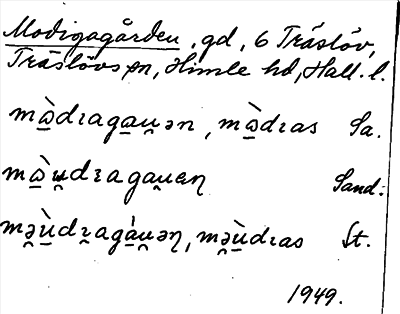 Modigagården, gd, 6 Träslöv,
Träslövs sn, Himle hd, Hall. l.
mὼ̲dɪaga̲u̯ən, mὼ̲dɪas Sa.
mὼ̲u̯dɪagau̯eɳ Sand.
mə̯ù̲dɪ̯agà̲u̯əɳ, mə̯ù̲dɪas St.
1949.